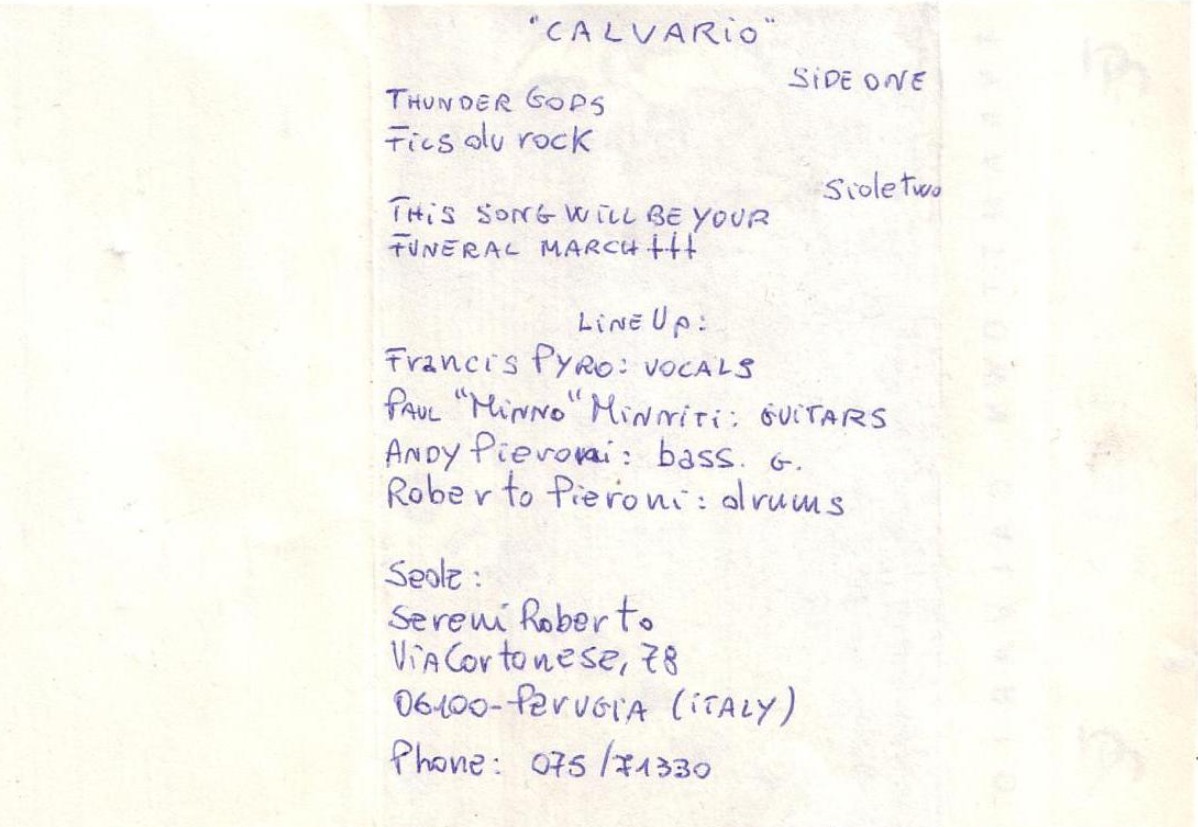 "CALVARIO"
SIDE ONE
THUNDER GODS
Fics du rock
Side two
THIS SONG WILL BE YOUR
FUNERAL MARCH †††
LINE UP:
Francis PYRO: VOCALS
PAUL "MINNO" MINNITI: GUITARS
ANDY Pieroni: bass. G.
Roberto Pieroni: drums
Sede:
Sereni Roberto
Via Cortonese, 78
06100-PERUGIA (ITALY)
Phone: 075/71330